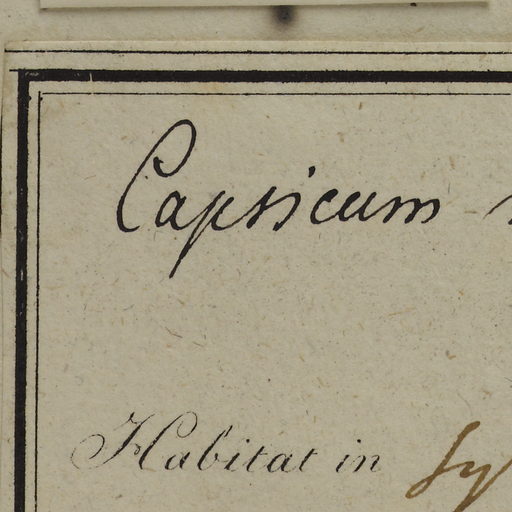 Capsicum
Habitat in